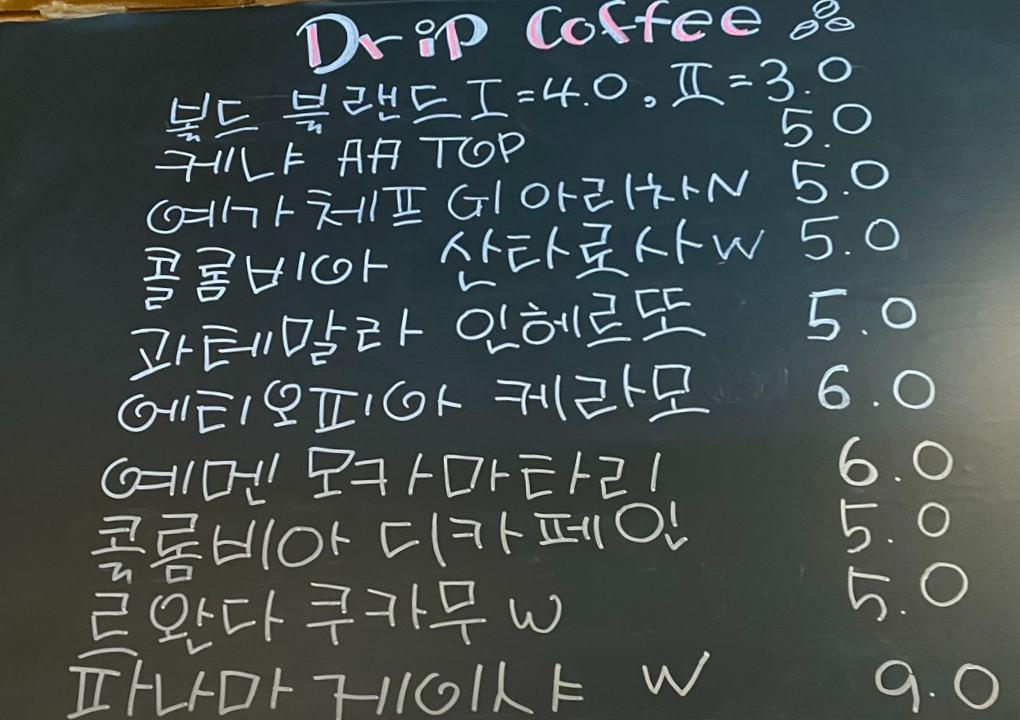 Drip Coffee
볼드 블랜드 I = 4.0, II = 3.0
케냐 AA TOP 5.0
예가체프 G1 아리차 N 5.0
콜롬비아 산타로사 W 5.0
과테말라 인헤르또 5.0
에티오피아 케라모 6.0
예멘 모카마타리 6.0
콜롬비아 디카페인 5.0
르완다 쿠카무 W 5.0
파나마 게이샤 W 9.0